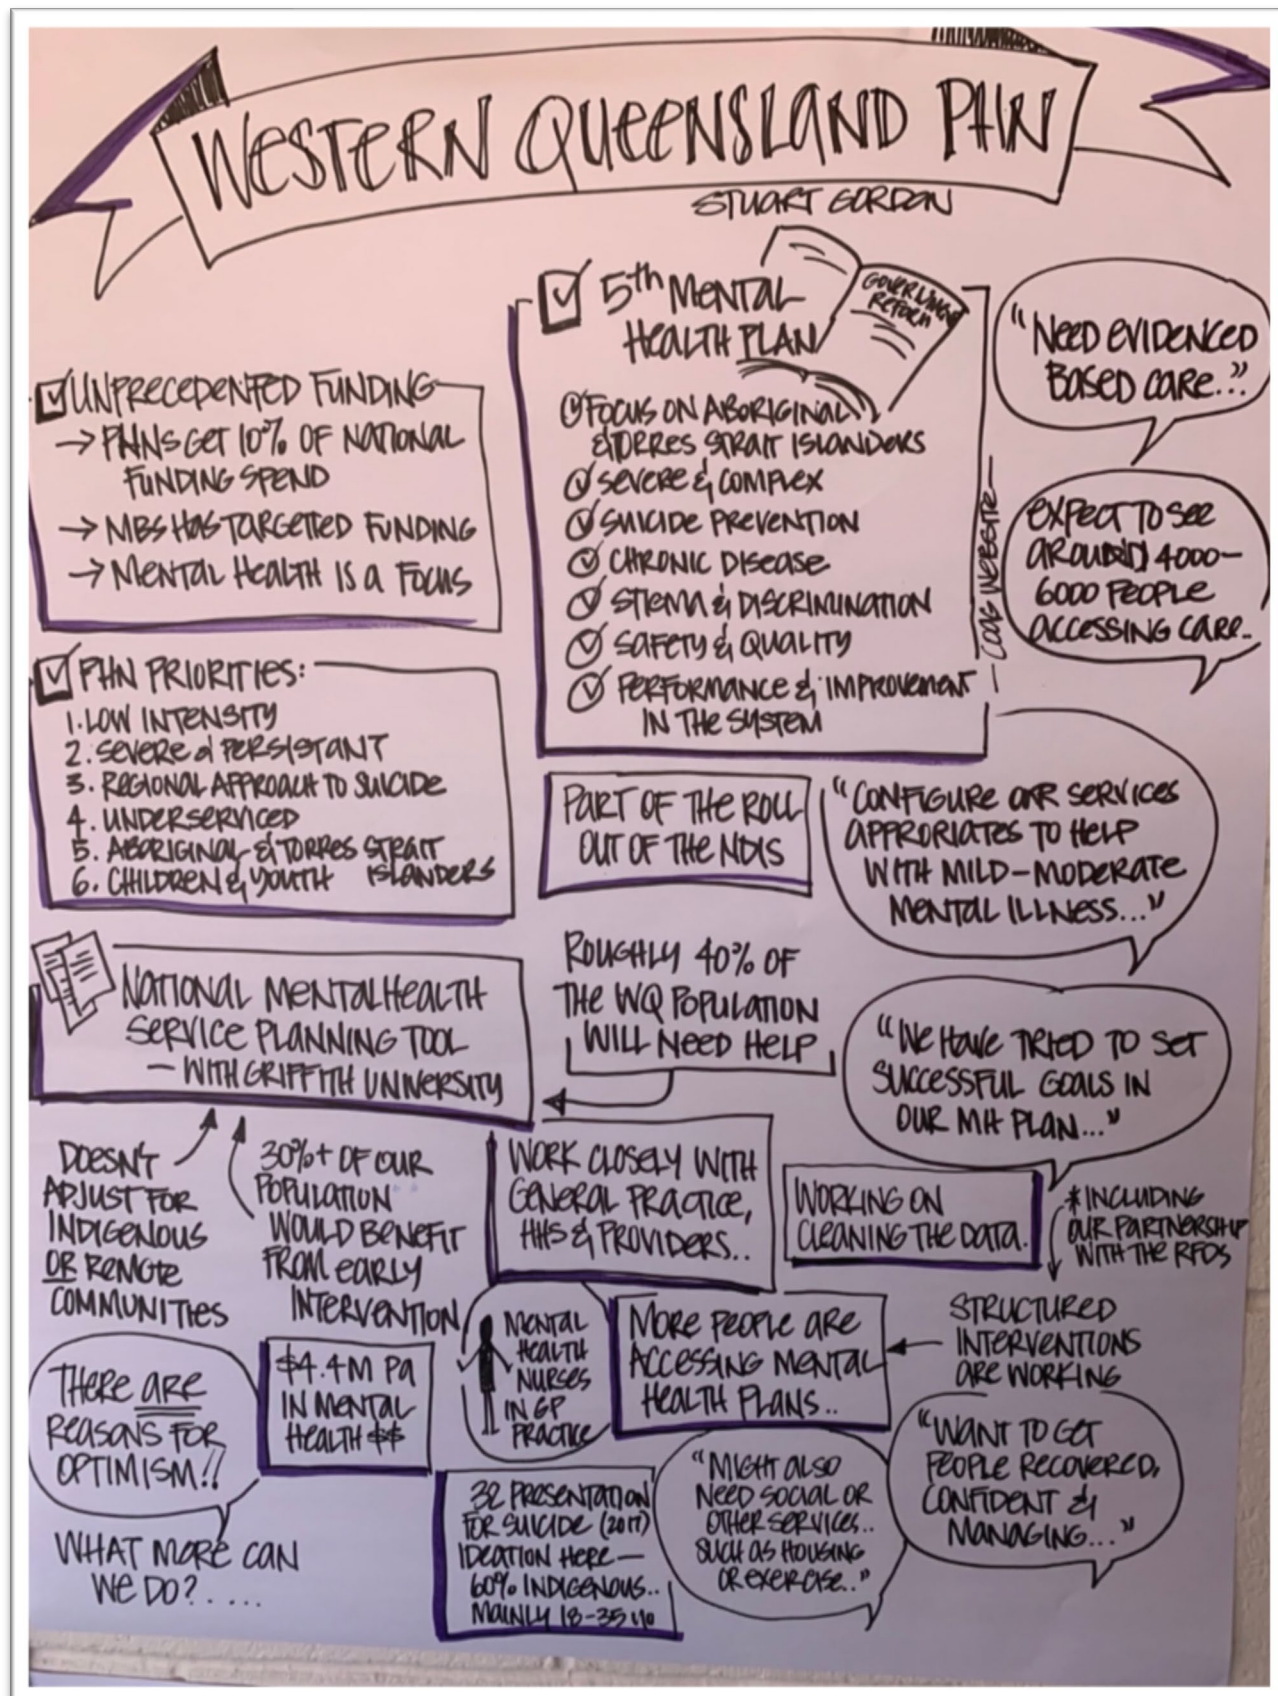 WESTERN QUEENSLAND PHN
STUART GORDON
UNPRECEDENTED FUNDING
→ PHNS GET 10% OF NATIONAL
FUNDING SPEND
→ MBS HAS TARGETTED FUNDING
→ MENTAL HEALTH IS A FOCUS
PHN PRIORITIES:
1. LOW INTENSITY
2. SEVERE & PERSISTANT
3. REGIONAL APPROACH TO SUICIDE
4. UNDERSERVICED
5. ABORIGINAL & TORRES STRAIT
ISLANDERS
6. CHILDREN & YOUTH
5th MENTAL
HEALTH PLAN
REFORM
FOCUS ON ABORIGINAL
& TORRES STRAIT ISLANDERS
SEVERE & COMPLEX
SUICIDE PREVENTION
CHRONIC DISEASE
STIGMA & DISCRIMINATION
SAFETY & QUALITY
PERFORMANCE & IMPROVEMENT
IN THE SYSTEM
— COAG WEBSITE —
"NEED EVIDENCED
BASED CARE..."
EXPECT TO SEE
AROUND 4000–
6000 PEOPLE
ACCESSING CARE..
PART OF THE ROLL
OUT OF THE NDIS
"CONFIGURE OUR SERVICES
APPRORIATES TO HELP
WITH MILD – MODERATE
MENTAL ILLNESS..."
NATIONAL MENTAL HEALTH
SERVICE PLANNING TOOL
— WITH GRIFFITH UNIVERSITY
ROUGHLY 40% OF
THE WQ POPULATION
WILL NEED HELP
"WE HAVE TRIED TO SET
SUCCESSFUL GOALS IN
OUR MH PLAN..."
DOESN'T
ADJUST FOR
INDIGENOUS
OR REMOTE
COMMUNITIES
30%+ OF OUR
POPULATION
WOULD BENEFIT
FROM EARLY
INTERVENTION
WORK CLOSELY WITH
GENERAL PRACTICE,
HHS & PROVIDERS..
WORKING ON
CLEANING THE DATA.
* INCLUDING
OUR PARTNERSHIP
WITH THE RFDS
THERE ARE
REASONS FOR
OPTIMISM!!
WHAT MORE CAN
WE DO?.....
$4.4M PA
IN MENTAL
HEALTH $$
MENTAL
HEALTH
NURSES
IN GP
PRACTICE
MORE PEOPLE ARE
ACCESSING MENTAL
HEALTH PLANS..
STRUCTURED
INTERVENTIONS
ARE WORKING
32 PRESENTATION
FOR SUICIDE (2017)
IDEATION HERE —
60% INDIGENOUS..
MAINLY 18-35
"MIGHT ALSO
NEED SOCIAL OR
OTHER SERVICES..
SUCH AS HOUSING
OR EXERCISE.."
"WANT TO GET
PEOPLE RECOVERED,
CONFIDENT &
MANAGING..."